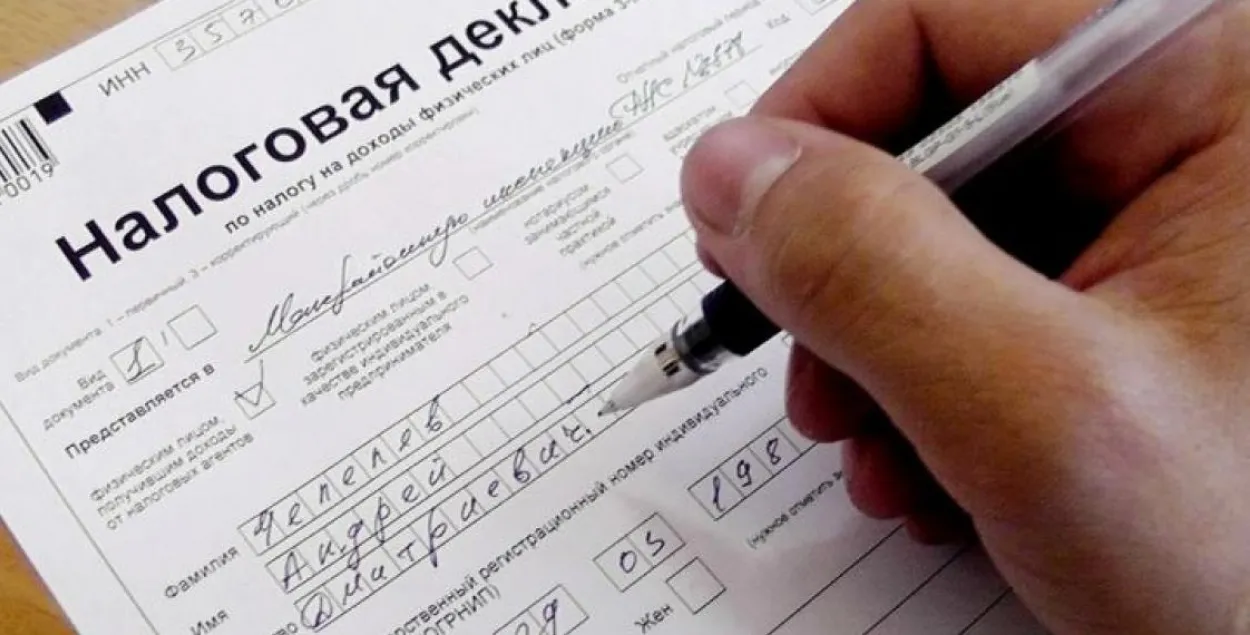 ИНН 3570
0019
Налоговая декл
по налогу на доходы физических лиц (форма 3-
Отчетный налоговый период
Код
Вид документа: 1 – первичный, 3 – корректирующий (через дробь номер корректировки)
Вид
документа 1 /
Представляется в Межрайонную инспекцию
наименование налогового органа
физическим лицом,
получившим доходы
от налоговых агентов
физическим лицом,
зарегистрированным в
качестве индивидуального
предпринимателя
нотариусом,
занимающимся
частной
практикой
адвокатом
(нужное отметить
Фамилия Чепелев
Имя Андрей
во Дмитриевич
рственный регистрационный номер индивидуального
ОГРНИП)
09 05 198
Жен
(нужное отметить